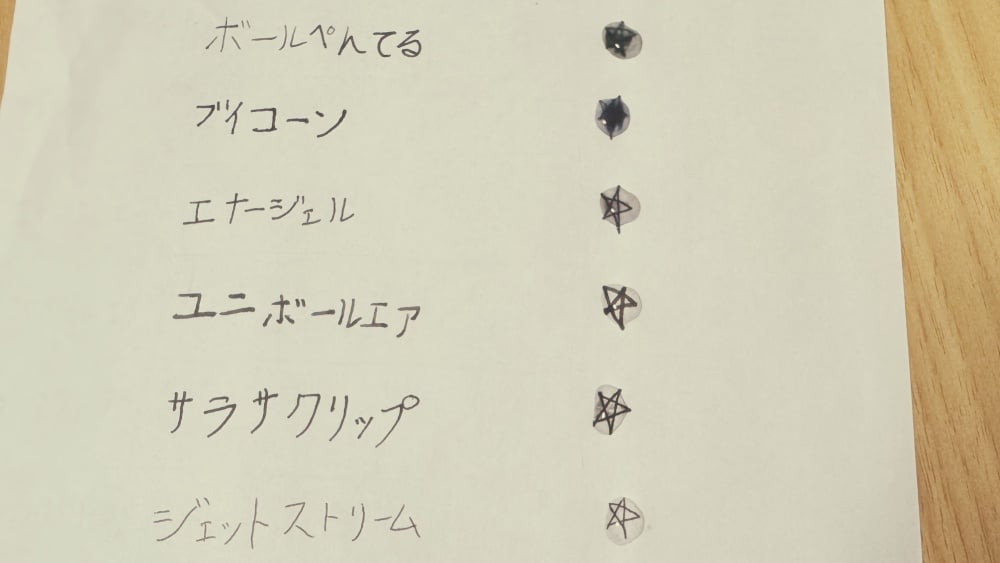 ボールぺんてる
ブイコーン
エナージェル
ユニボールエア
サラサクリップ
ジェットストリーム